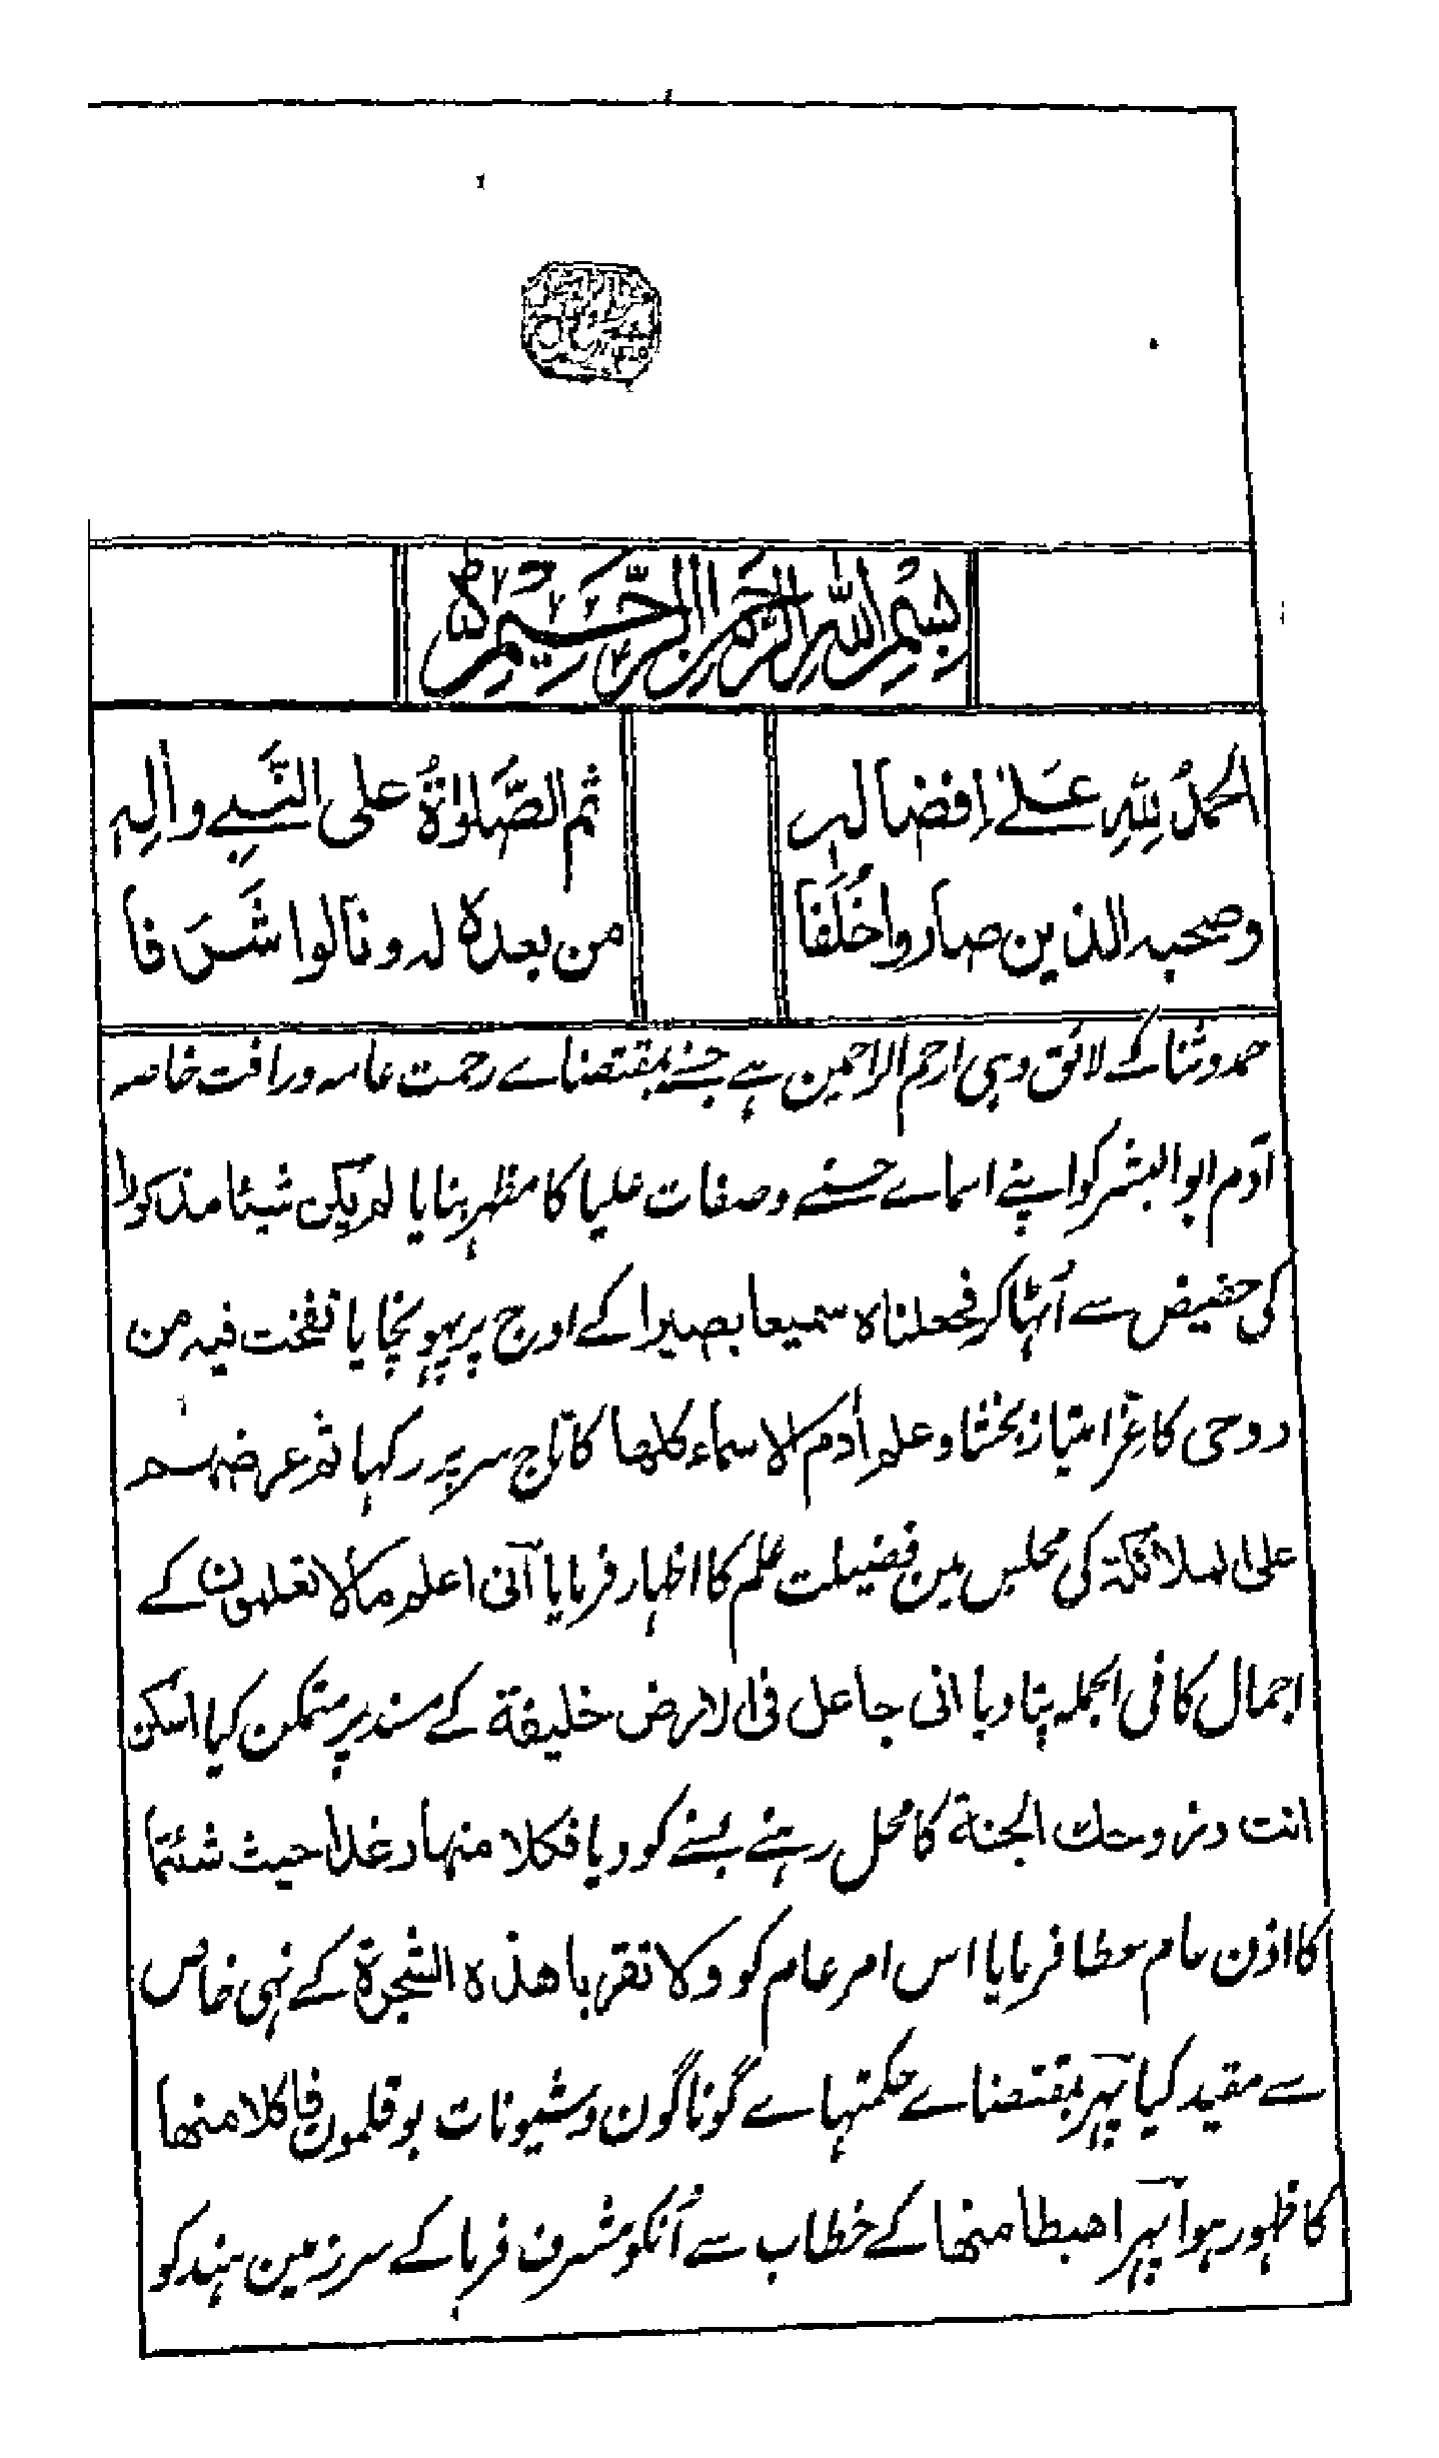 بِسْمِ اللّٰهِ الرَّحْمٰنِ الرَّحِيْمِ
الحمدُ لِلّٰهِ عَلےٰ اِفضالہٖ ثم الصَّلوٰۃُ علی النَّبِے واٰلِہٖ
وصحبہ الذین صاروا خُلَفَا من بعدہ لہ ونالوا شَرَفا
حمد وثنا کے لائق وہی ارحم الراحمین ہے جسنے بمقتضاے رحمت عامہ ورافت خاصہ
آدم ابوالبشر کو اپنے اسماے حسنے وصفات علیا کا مظہر بنایا لم یکن شیئا مذکورا
کی حضیض سے اُٹہا کر فجعلناہ سمیعا بصیرا کے اوج پر پہونچایا نفخت فیہ من
روحی کا عزِّ امتیاز بخشا وعلم اٰدم الاسماء کلھا کا تاج سر پر رکہا ثم عرضہم
علی الملائکۃ کی مجلس مین فضیلت علم کا اظہار فرمایا انی اعلم مالا تعلمون کے
اجمال کا فی الجملہ پتا دیا انی جاعل فی الارض خلیفۃ کے مسند پر متمکن کیا اسکن
انت وزوجك الجنۃ کا محل رہنے بسنے کو دیا فکلا منہا رغدا حیث شئتما
کا اذن عام عطا فرمایا اس امر عام کو ولا تقربا ھذہ الشجرۃ کے نہی خاص
سے مقید کیا پہر بمقتضاے حکمتہاے گوناگون وشیونات بوقلمون فاکلا منھا
کا ظہور ہوا پہر اھبطا منھا کے خطاب سے اُنکو مشرف فرما کے سرزمین ہند کو